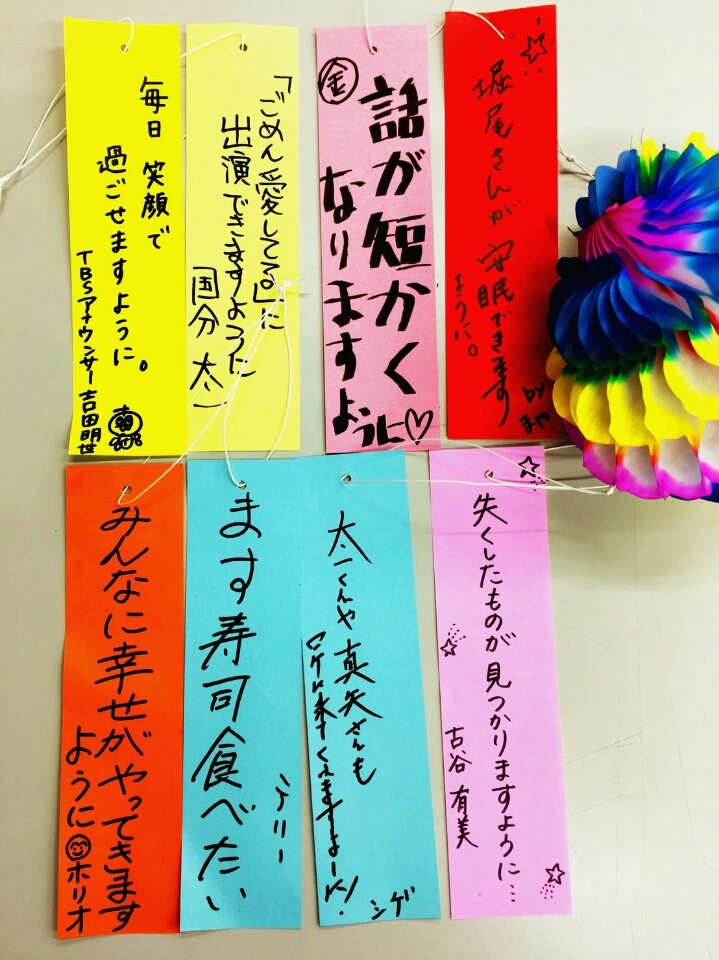 堀尾さんが安眠できます
ように。
by まや
話が短かく
なりますように♡
㊎
「ごめん愛してる」に
出演できますように
国分 太一
毎日 笑顔で
過ごせますように。
TBSアナウンサー吉田明世
失くしたものが見つかりますように…
古谷 有美
太一くんや真矢さんも
ロケに来てくれますよーに!
シゲ
ます寿司食べたい
みんなに幸せがやってきます
ように ホリオ